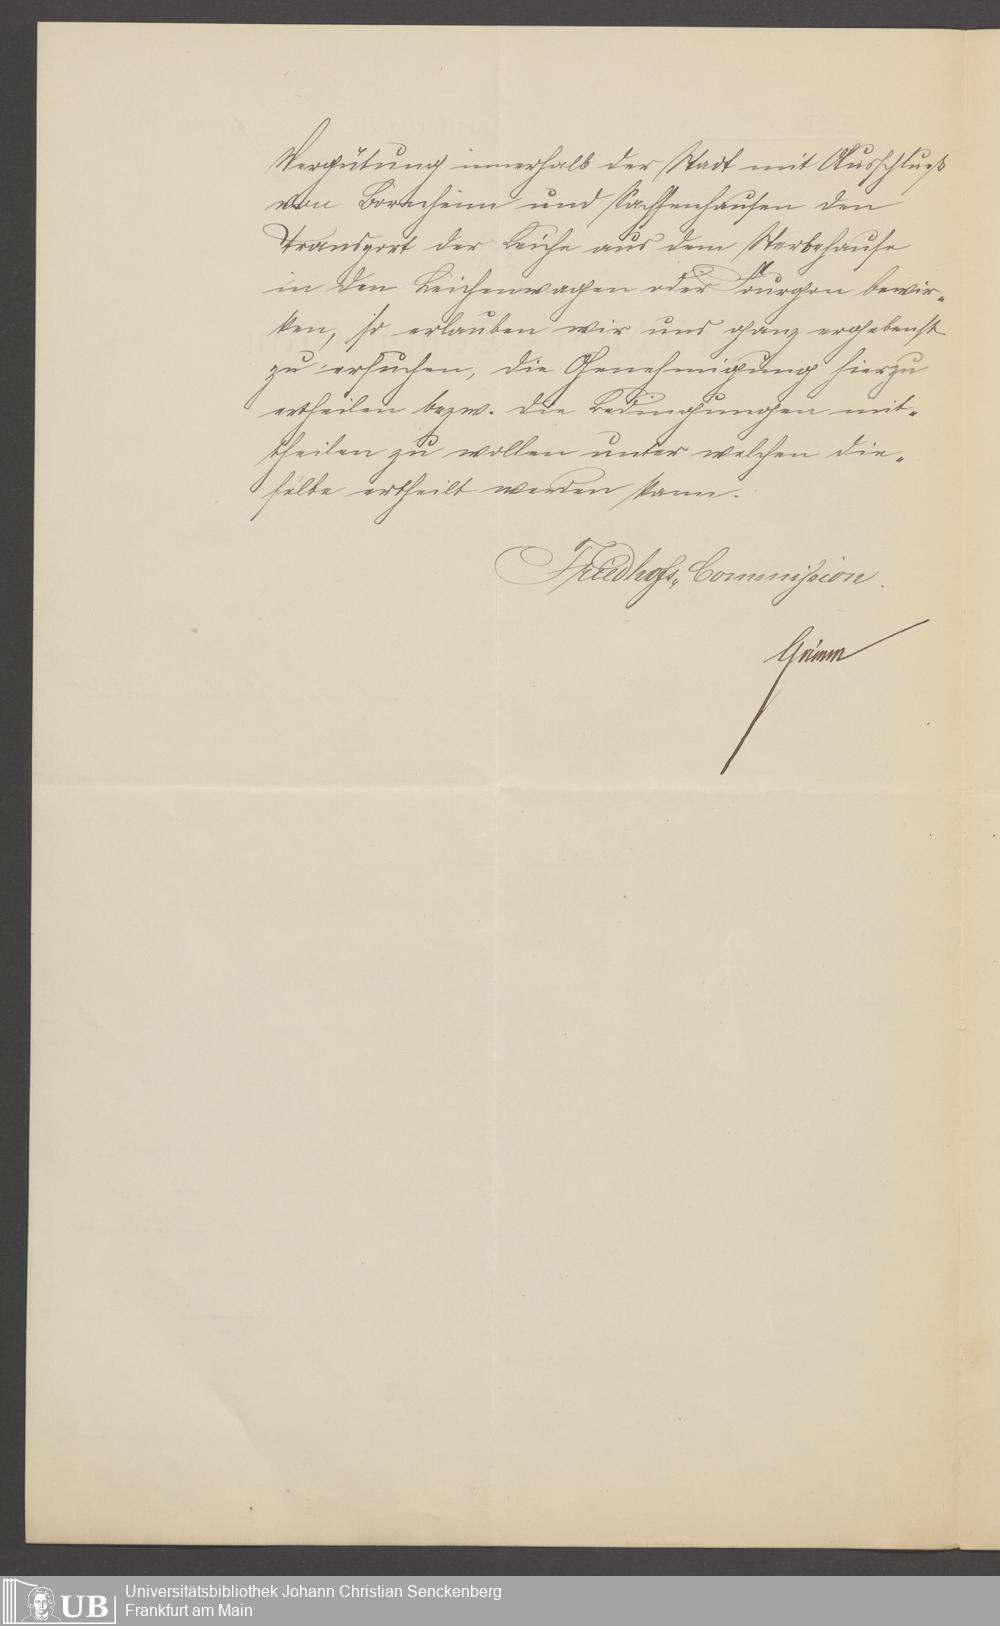 Vergütung innerhalb der Stadt mit Ausschluß
von Bornheim und Sachsenhausen den
Transport der Leiche aus dem Sterbehause
in den Leichenwagen oder Fourgon bewir-
ken, so erlauben wir uns ganz ergebenst
zu ersuchen, die Genehmigung hierzu
ertheilen bezw. die Bedingungen mit-
theilen zu wollen unter welchen die-
selbe ertheilt werden kann.
Friedhofs-Commission.
Grimm
UB
Universitätsbibliothek Johann Christian Senckenberg
Frankfurt am Main